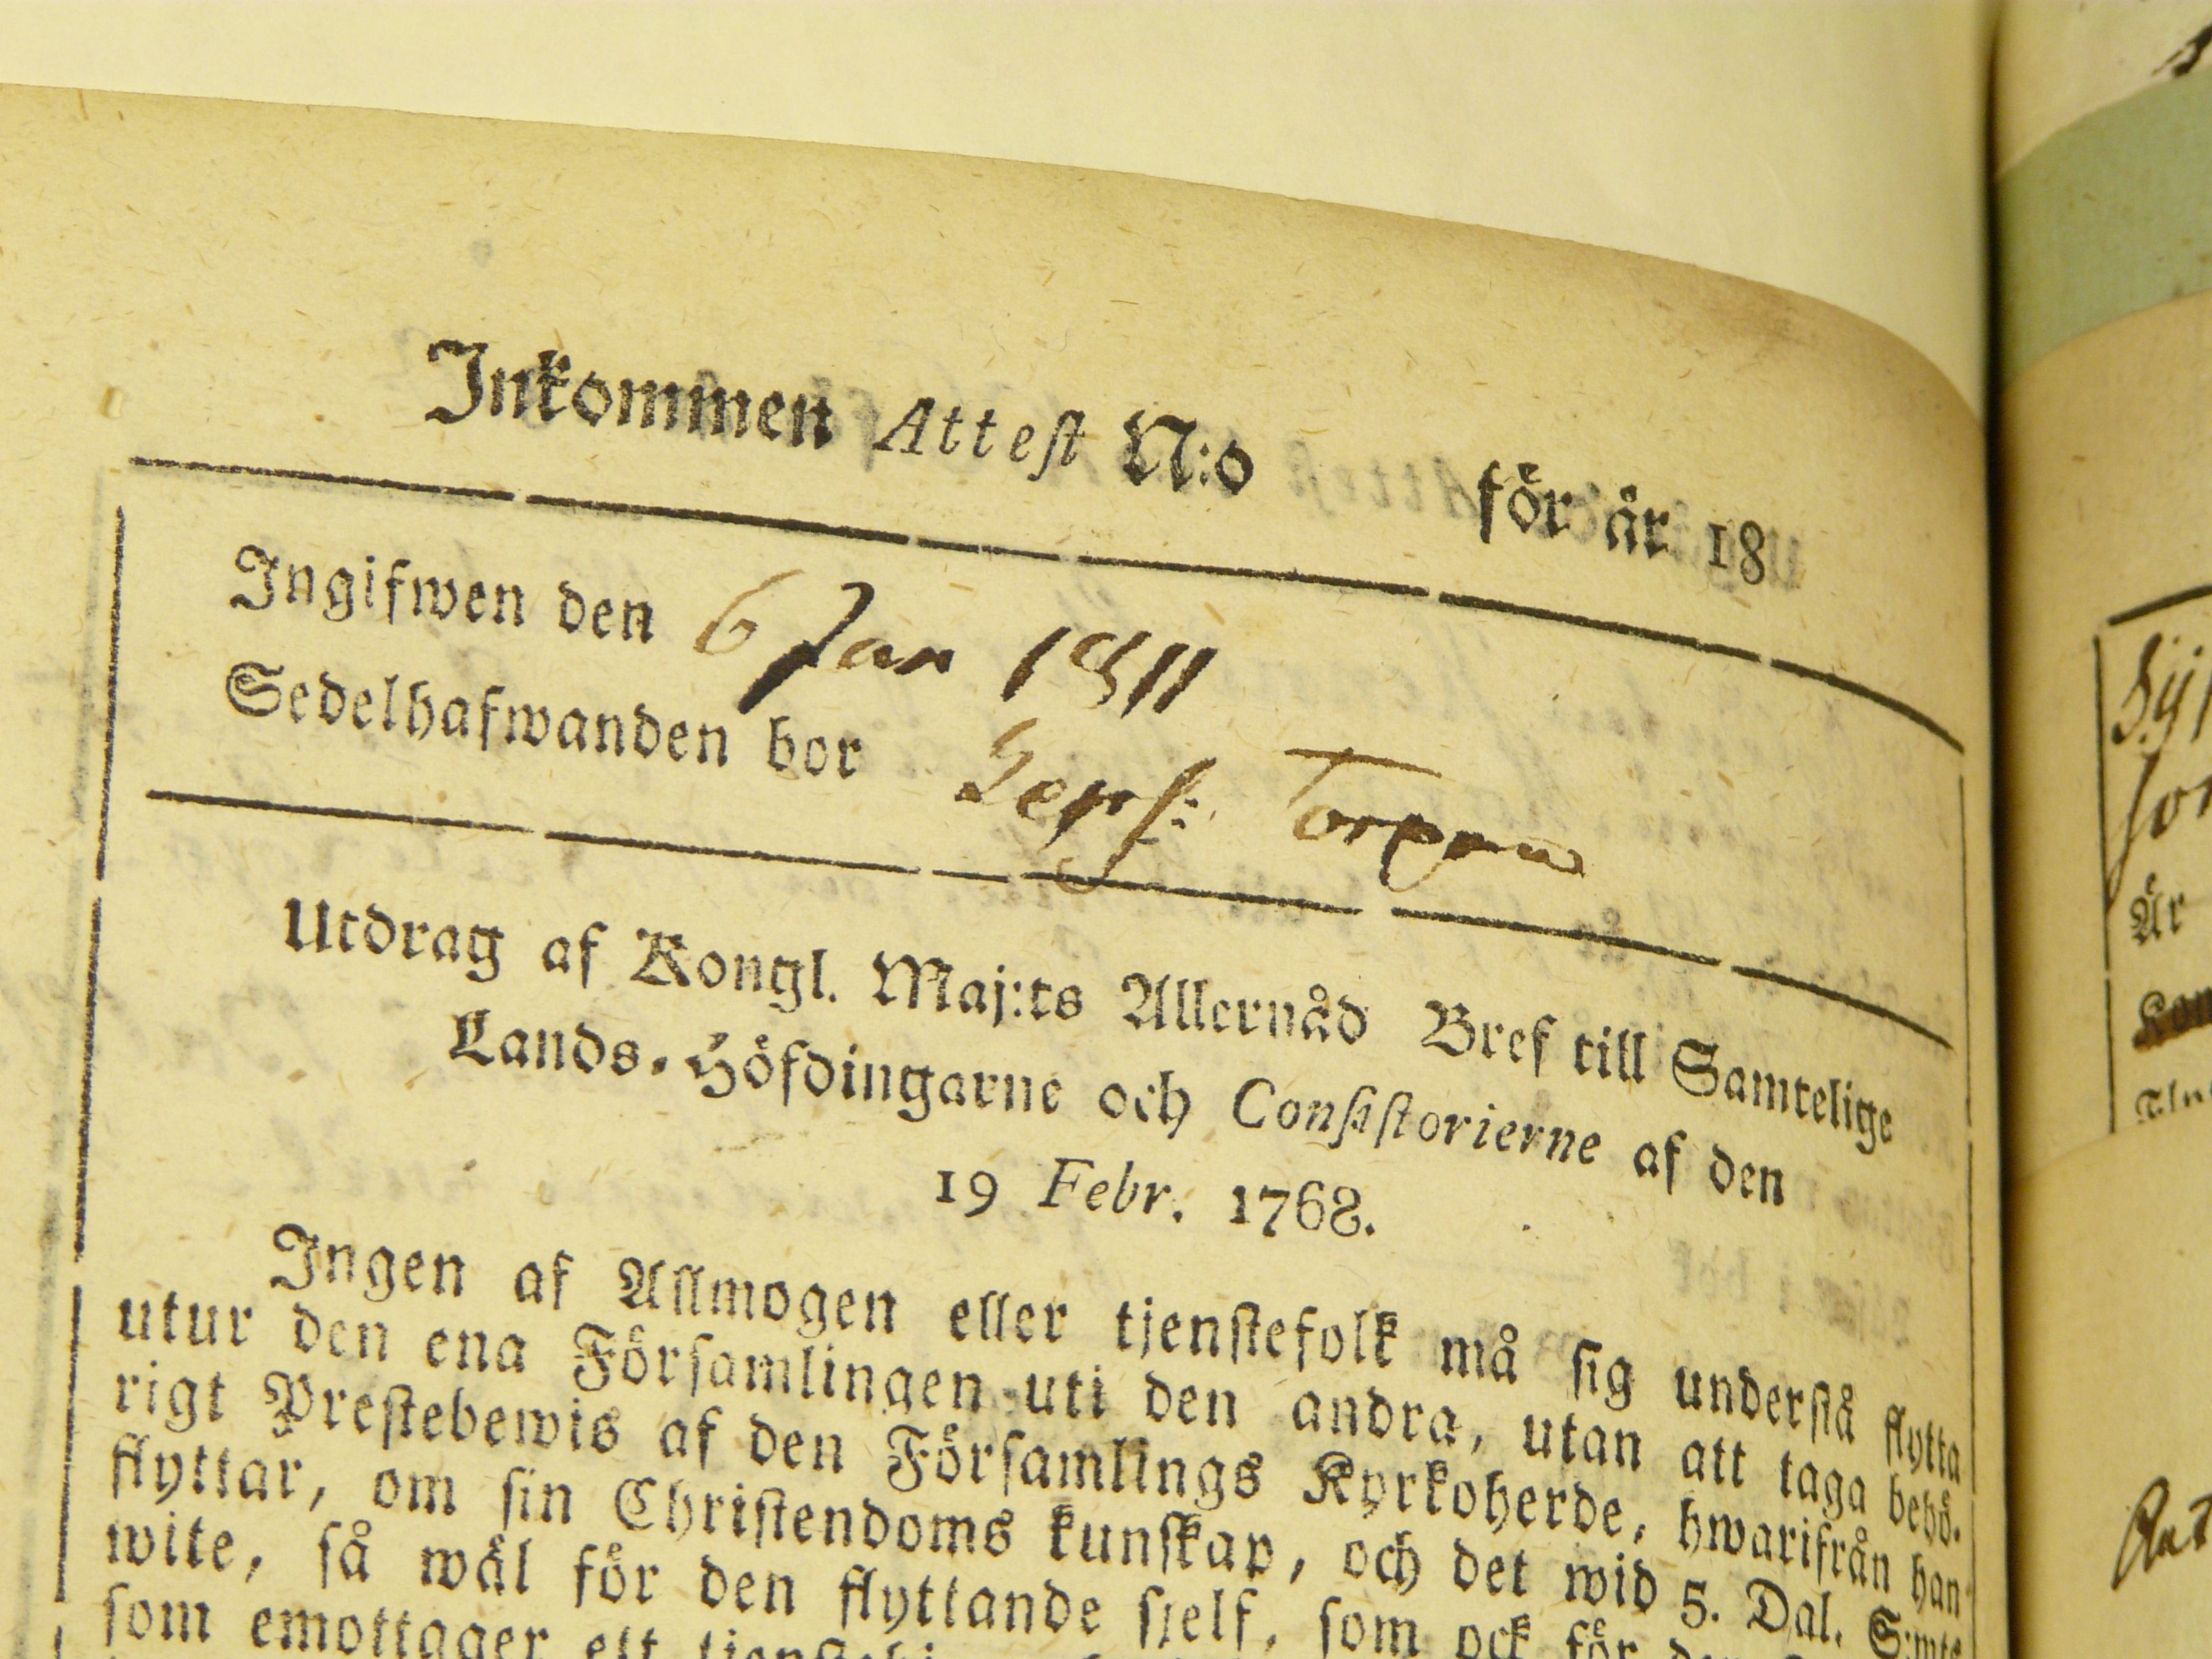 Inkommen Attest N:o för år 18
Ingifwen den 6 Jan 1811
Sedelhafwanden bor Torpen
Utdrag af Kongl. Maj:ts Allernåd Bref till Samtelige
Lands-Höfdingarne och Consistorierne af den
19 Febr. 1768.
Ingen af Allmogen eller tjenstefolk må sig understå flytta
utur den ena Församlingen uti den andra, utan att taga behö-
rigt Prestebewis af den Församlings Kyrkoherde, hwarifrån han
flyttar, om sin Christendoms kunskap, och det wid 5. Dal. S:mts
wite, så wäl för den flyttande sjelf, som ock för
som emottager
År